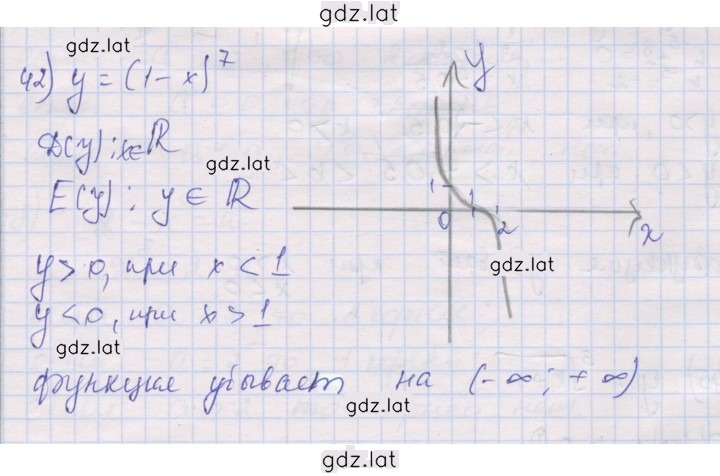 gdz.lat
gdz.lat
42) y = (1-x)^7
y
D(y): x∈ℝ
gdz.lat
E(y): y ∈ ℝ
1
1
0
2
x
gdz.lat
y>0, при x < 1
y<0, при x > 1
gdz.lat
функция убывает на (-∞; +∞)
gdz.lat
gdz.lat